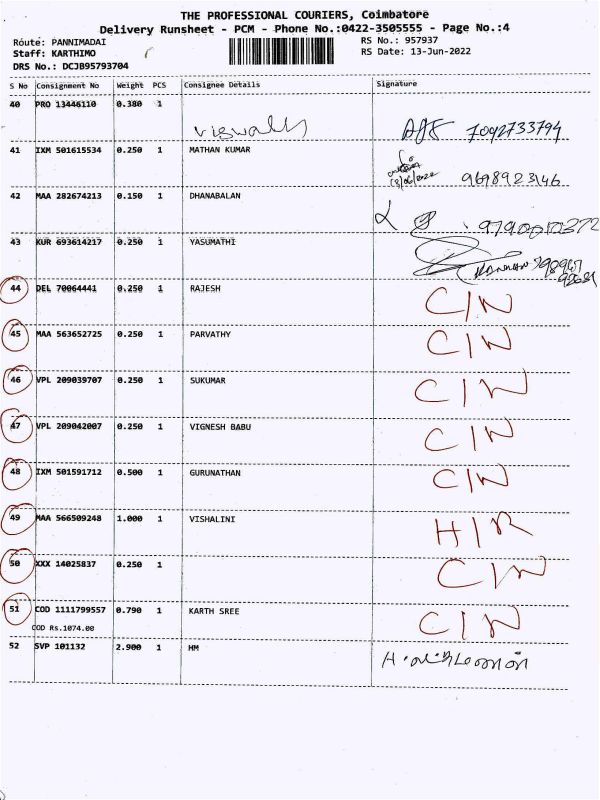 THE PROFESSIONAL COURIERS, Coimbatore
Delivery Runsheet - PCM - Phone No.:0422-3505555 - Page No.:4
Route: PANNIMADAI
RS No.: 957937
Staff: KARTHIMO
RS Date: 13-Jun-2022
DRS No.: DCJB95793704
S No Consignment No Weight PCS Consignee Details Signature
40 PRO 13446110 0.380 1 7092733794
41 IXM 501615534 0.250 1 MATHAN KUMAR 9698923146
13/06/2022
42 MAA 282674213 0.150 1 DHANABALAN
43 KUR 693614217 0.250 1 YASUMATHI
44 DEL 70064441 0.250 1 RAJESH C/N
45 MAA 563652725 0.250 1 PARVATHY C/N
46 VPL 209039707 0.250 1 SUKUMAR C/N
47 VPL 209042007 0.250 1 VIGNESH BABU C/N
48 IXM 501591712 0.500 1 GURUNATHAN C/N
49 MAA 566509248 1.000 1 VISHALINI H/R
50 XXX 14025837 0.250 1 C/N
51 COD 1111799557 0.790 1 KARTH SREE C/N
COD Rs.1074.00
52 SVP 101132 2.900 1 HM